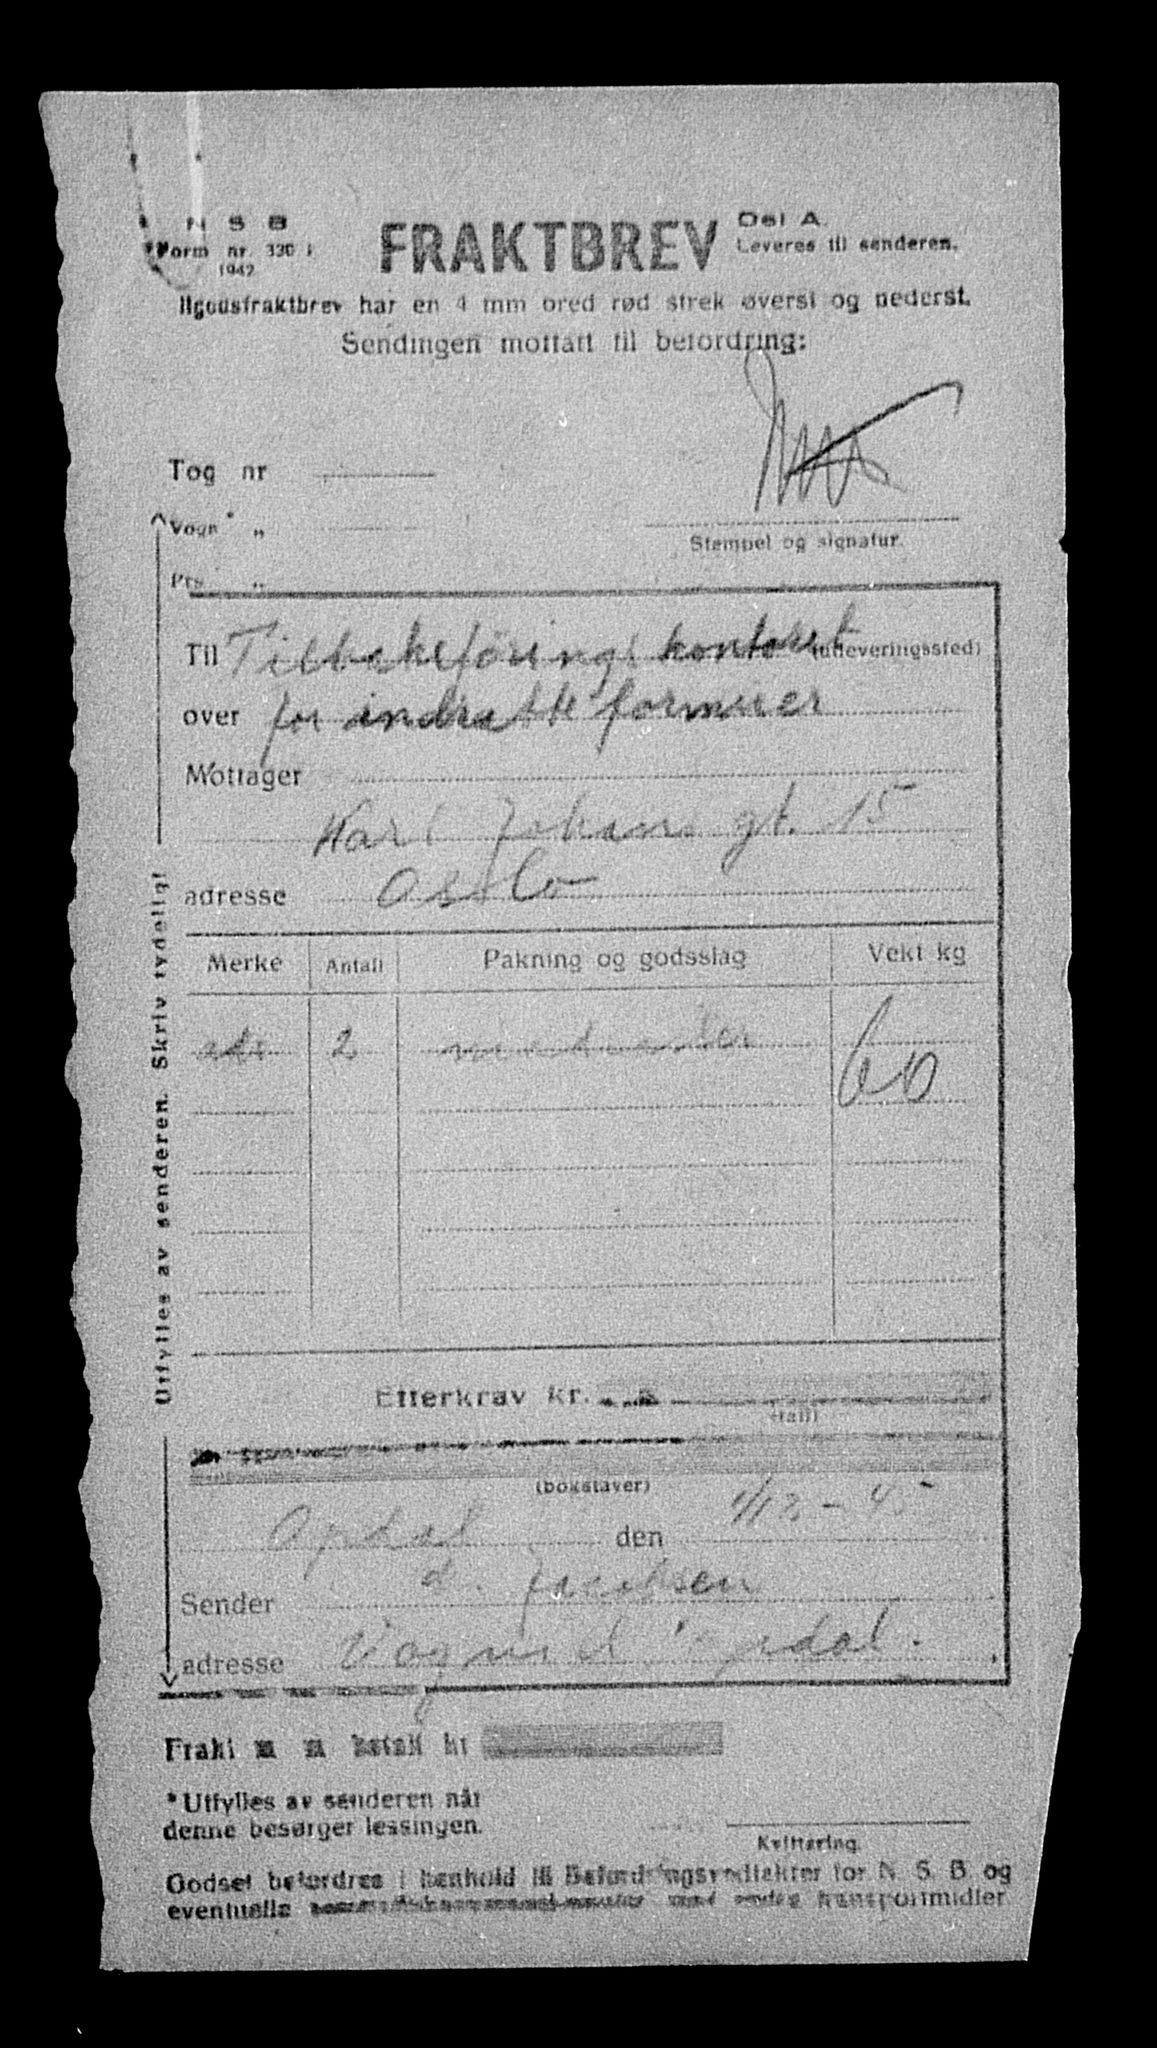 N S B
Form nr. 330 1
1942
FRAKTBREV
Del A.
Leveres til senderen.
Ilgodsfraktbrev har en 4 mm bred rød strek øverst og nederst.
Sendingen mottatt til befordring:
Tog nr
Vogn * „
Prs „
Stempel og signatur.
Til Tilbakeførings kontoret (utleveringssted)
over for indratte formuer
Mottager
Karl Johans gt. 15
adresse Oslo
Merke Antall Pakning og godsslag Vekt kg
adr 2 60
Utfylles av senderen. Skriv tydelig!
Etterkrav kr.
(tall)
(bokstaver)
Opdal den 1/12-45
Sender Jacobsen
adresse Vognill Opdal.
Frakt betalt kr
*Utfylles av senderen når
denne besørger lessingen.
Kvittering.
Godset befordres i henhold til Befordringsvedtekter for N. S. B. og
eventuelle transportmidler